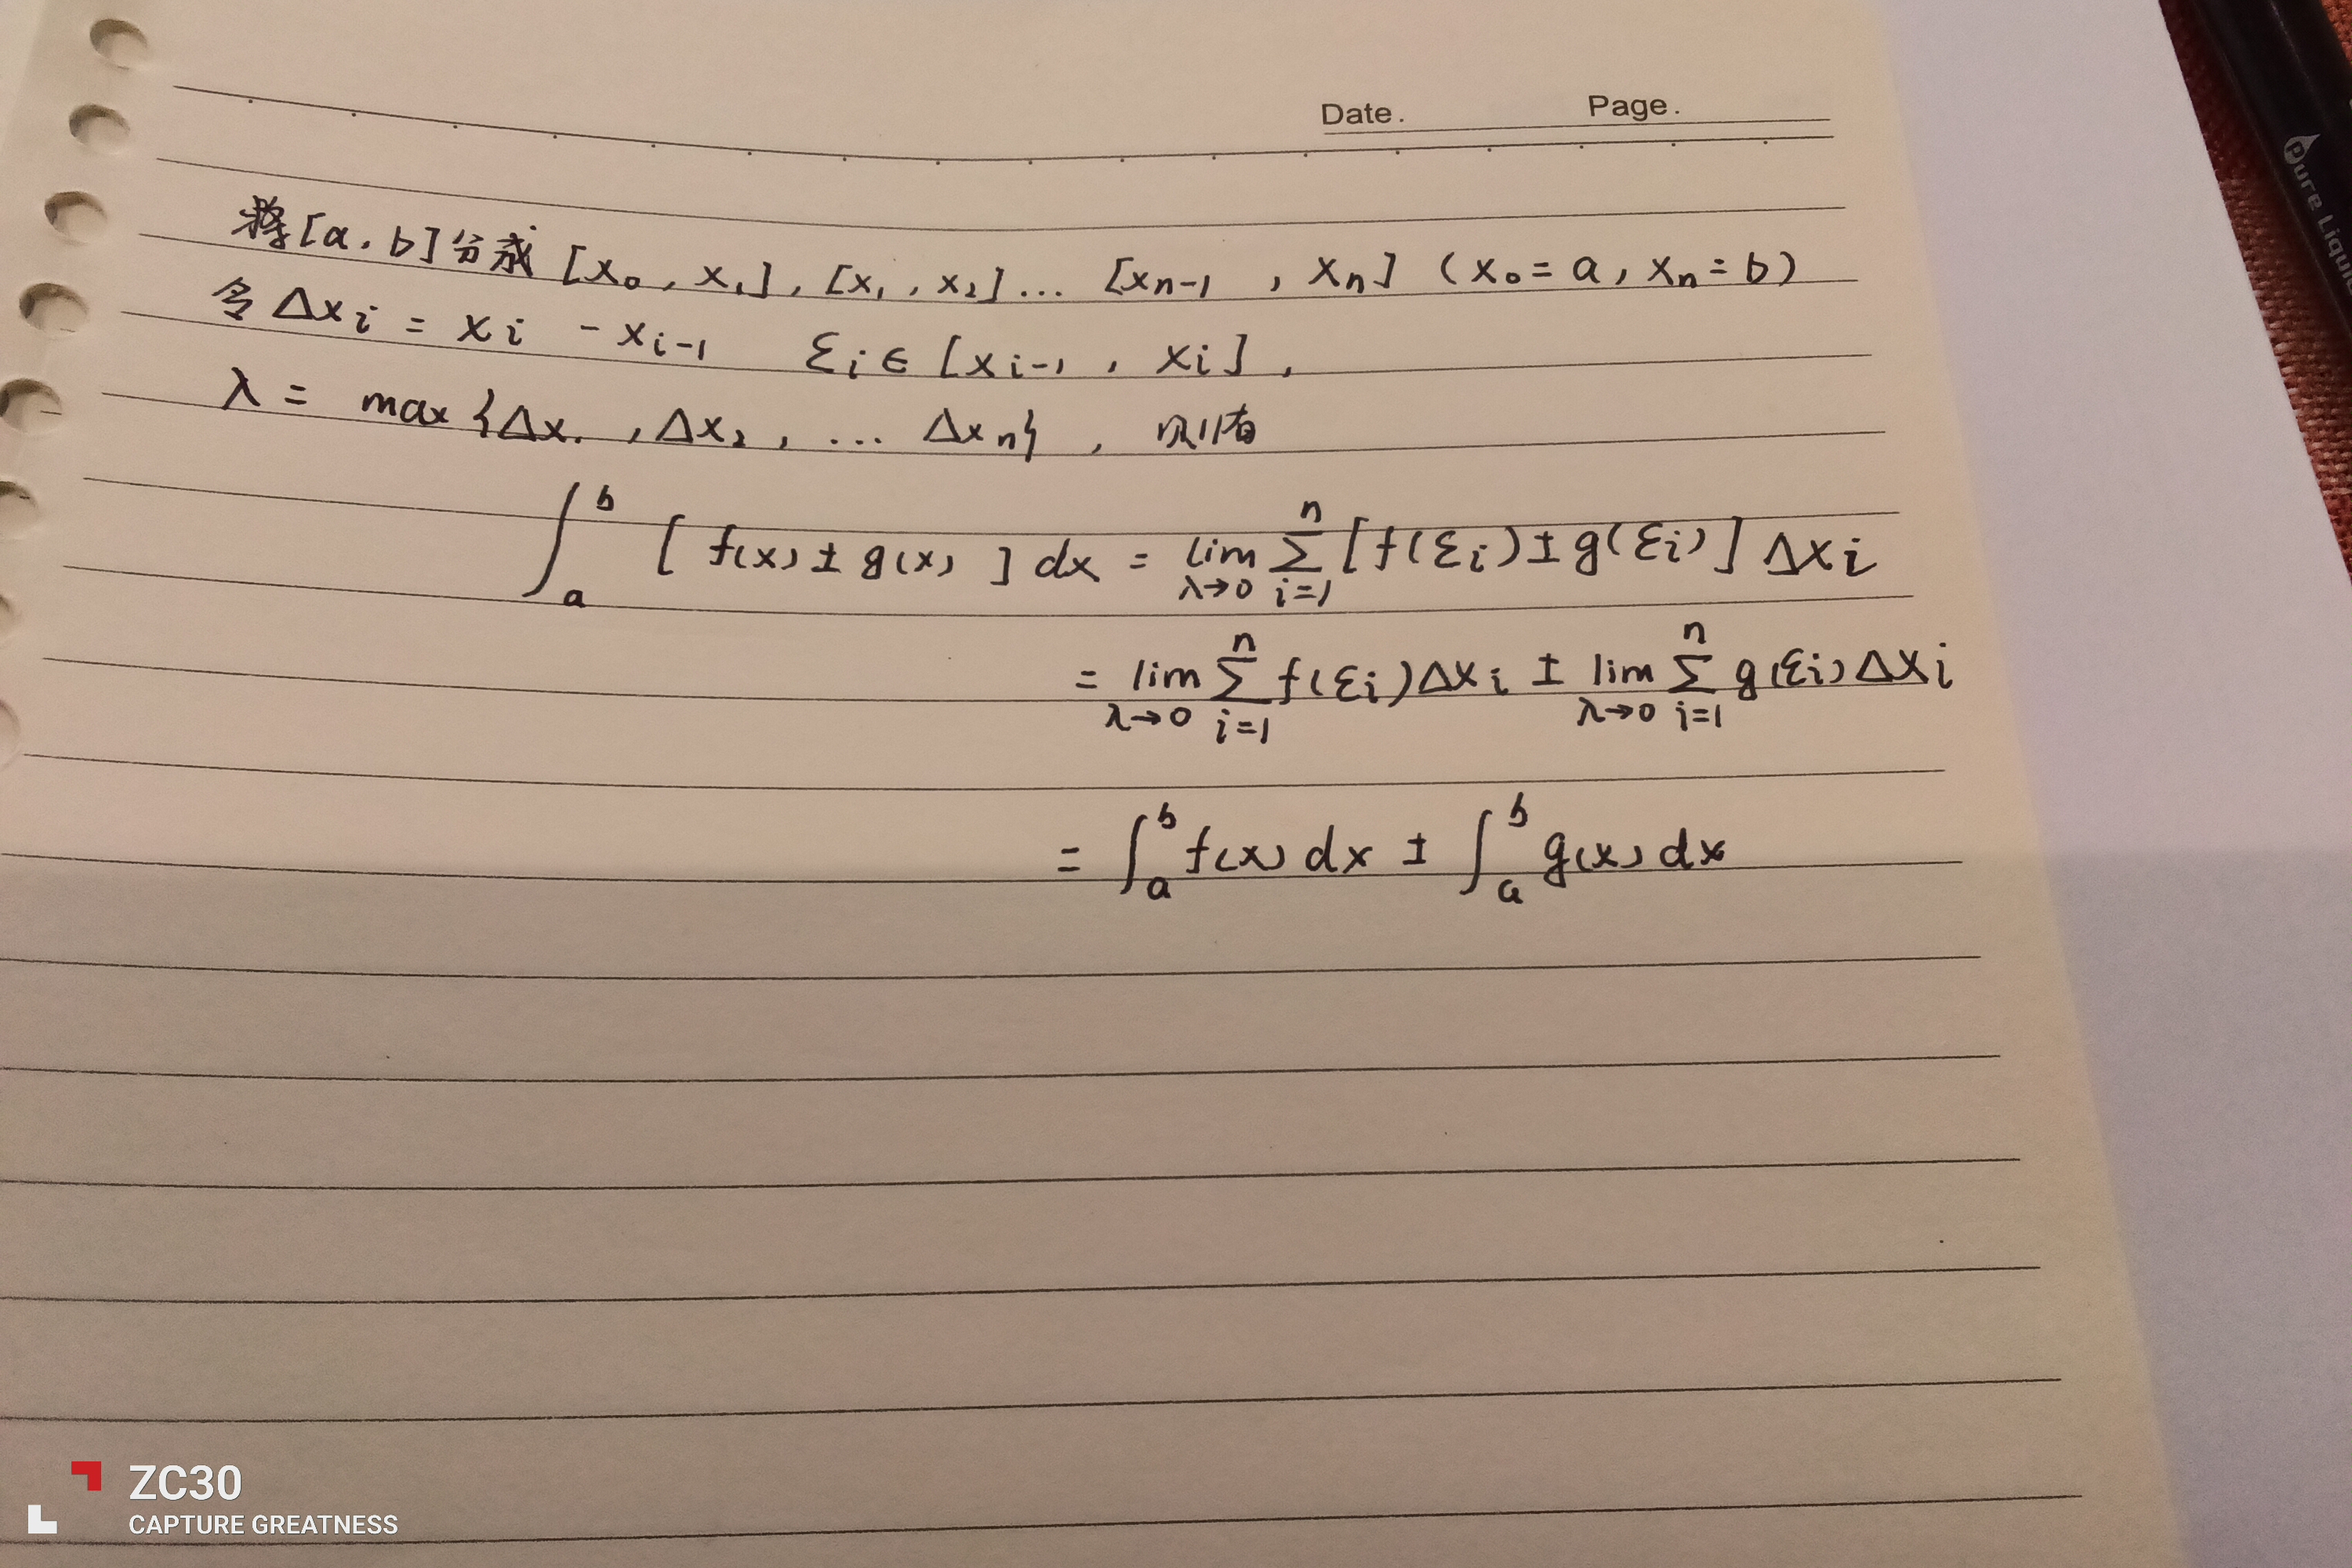 Date. Page.
将[a,b]分成[x₀, x₁], [x₁, x₂]... [xₙ₋₁, xₙ] (x₀=a, xₙ=b)
令Δxᵢ = xᵢ - xᵢ₋₁ ξᵢ∈[xᵢ₋₁, xᵢ],
λ = max{Δx₁, Δx₂, ... Δxₙ}, 则有
∫ₐᵇ [f(x)±g(x)]dx = lim_{λ→0} ∑_{i=1}^{n} [f(ξᵢ)±g(ξᵢ)]Δxᵢ
= lim_{λ→0} ∑_{i=1}^{n} f(ξᵢ)Δxᵢ ± lim_{λ→0} ∑_{i=1}^{n} g(ξᵢ)Δxᵢ
= ∫ₐᵇ f(x)dx ± ∫ₐᵇ g(x)dx
Pure Liqui
ZC30
CAPTURE GREATNESS